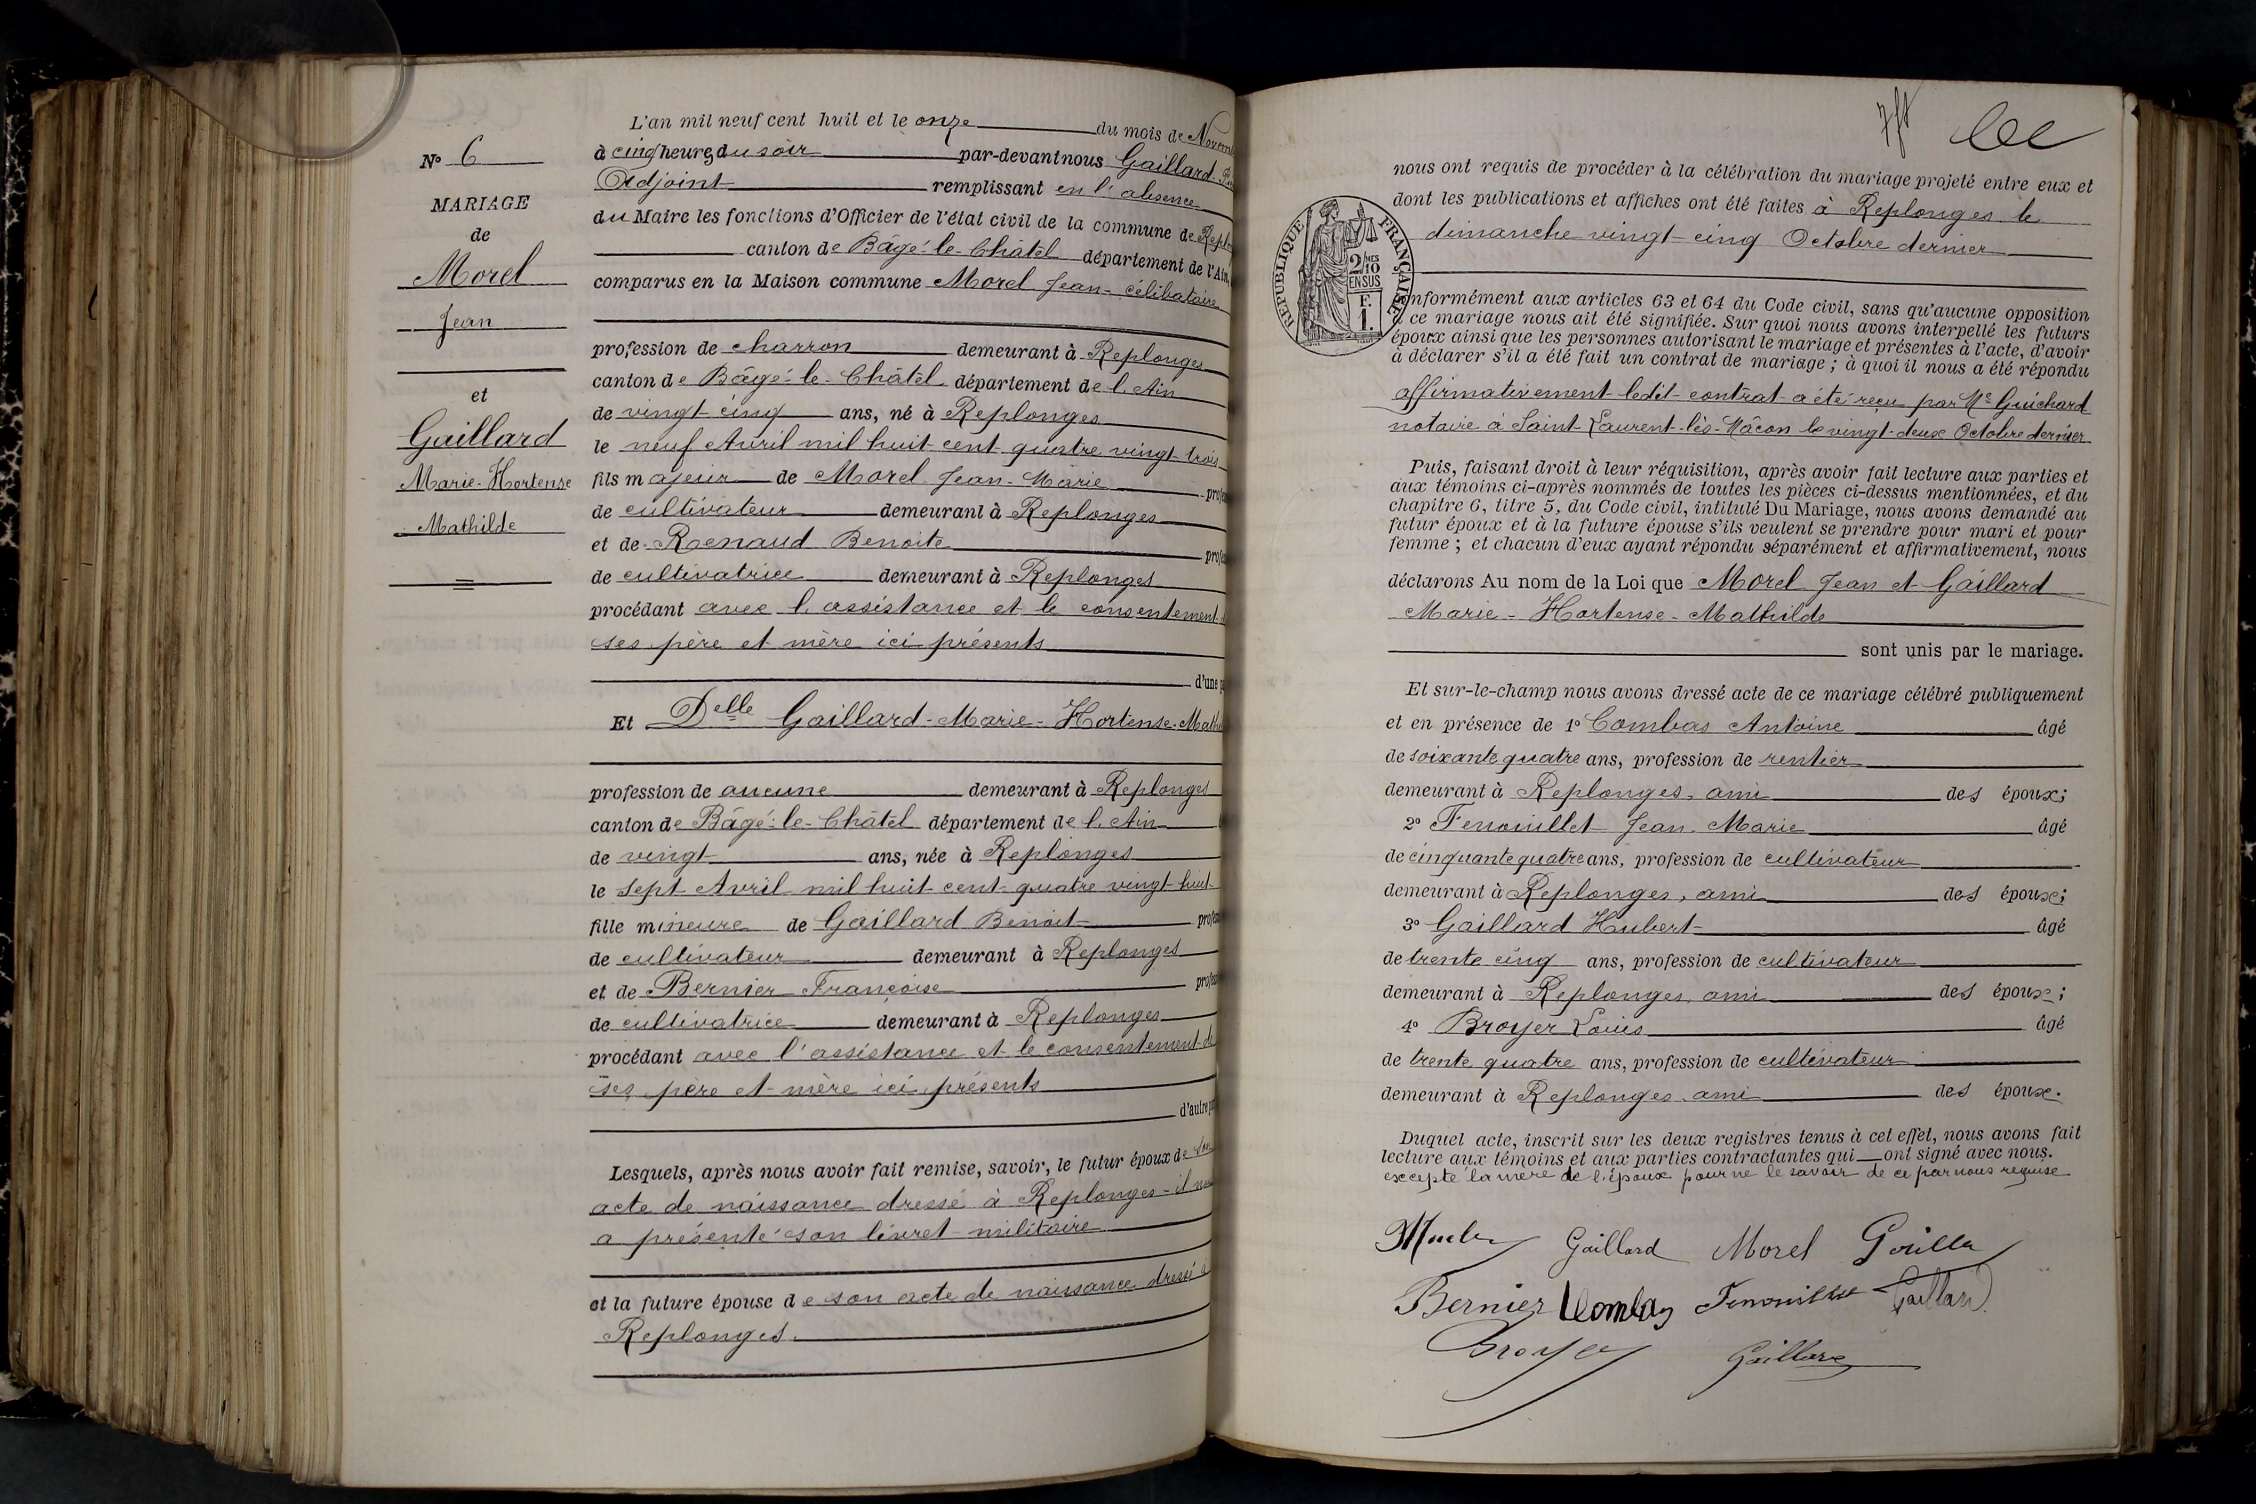 L'an mil neuf cent huit et le onze du mois de
N° 6
à cinq heures du soir par-devant nous Gaillard
Adjoint remplissant en l'absence
MARIAGE
du Maire les fonctions d'Officier de l'état civil de la commune de
de
canton de Bâgé-le-Châtel département de l'Ain
Morel
comparus en la Maison commune Morel Jean célibataire
Jean
profession de charron demeurant à Replonges
canton de Bâgé-le-Châtel département de l'Ain
et
de vingt cinq ans, né à Replonges
Gaillard
le neuf Avril mil huit cent quatre vingt trois
Marie-Hortense
fils majeur de Morel Jean-Marie
Mathilde
de cultivateur demeurant à Replonges
et de Renaud Benoite
de cultivatrice demeurant à Replonges
procédant avec l'assistance et le consentement
ses père et mère ici présents
d'une
Et Delle Gaillard-Marie-Hortense-
profession de aucune demeurant à Replonges
canton de Bâgé-le-Châtel département de l'Ain
de vingt ans, née à Replonges
le sept Avril mil huit cent quatre vingt huit
fille mineure de Gaillard Benoit
de cultivateur demeurant à Replonges
et de Bernier Françoise
de cultivatrice demeurant à Replonges
procédant avec l'assistance et le consentement de
ses père et mère ici présents
d'autre
Lesquels, après nous avoir fait remise, savoir, le futur époux de son
acte de naissance dressé à Replonges - il
a présenté son livret militaire
et la future épouse de son acte de naissance dressé à
Replonges.
nous ont requis de procéder à la célébration du mariage projeté entre eux et
dont les publications et affiches ont été faites à Replonges le
dimanche vingt-cinq Octobre dernier
RÉPUBLIQUE FRANÇAISE
2/10 MES
EN SUS
F.
1.
conformément aux articles 63 et 64 du Code civil, sans qu'aucune opposition
à ce mariage nous ait été signifiée. Sur quoi nous avons interpellé les futurs
époux ainsi que les personnes autorisant le mariage et présentes à l'acte, d'avoir
à déclarer s'il a été fait un contrat de mariage ; à quoi il nous a été répondu
affirmativement ledit contrat a été reçu par Me Guichard
notaire à Saint-Laurent-lès-Mâcon le vingt-deux Octobre dernier
Puis, faisant droit à leur réquisition, après avoir fait lecture aux parties et
aux témoins ci-après nommés de toutes les pièces ci-dessus mentionnées, et du
chapitre 6, titre 5, du Code civil, intitulé Du Mariage, nous avons demandé au
futur époux et à la future épouse s'ils veulent se prendre pour mari et pour
femme ; et chacun d'eux ayant répondu séparément et affirmativement, nous
déclarons Au nom de la Loi que Morel Jean et Gaillard
Marie-Hortense-Mathilde
sont unis par le mariage.
Et sur-le-champ nous avons dressé acte de ce mariage célébré publiquement
et en présence de 1° Combas Antoine âgé
de soixante quatre ans, profession de rentier
demeurant à Replonges, ami des époux ;
2° Fenouillet Jean-Marie âgé
de cinquante quatre ans, profession de cultivateur
demeurant à Replonges, ami des époux ;
3° Gaillard Hubert âgé
de trente cinq ans, profession de cultivateur
demeurant à Replonges, ami des époux ;
4° Broyer Louis âgé
de trente quatre ans, profession de cultivateur
demeurant à Replonges, ami des époux.
Duquel acte, inscrit sur les deux registres tenus à cet effet, nous avons fait
lecture aux témoins et aux parties contractantes qui ont signé avec nous.
excepté la mère de l'époux pour ne le savoir de ce par nous requise
Gaillard Morel
Bernier Combas Fenouillet Gaillard
Broyer Gaillard